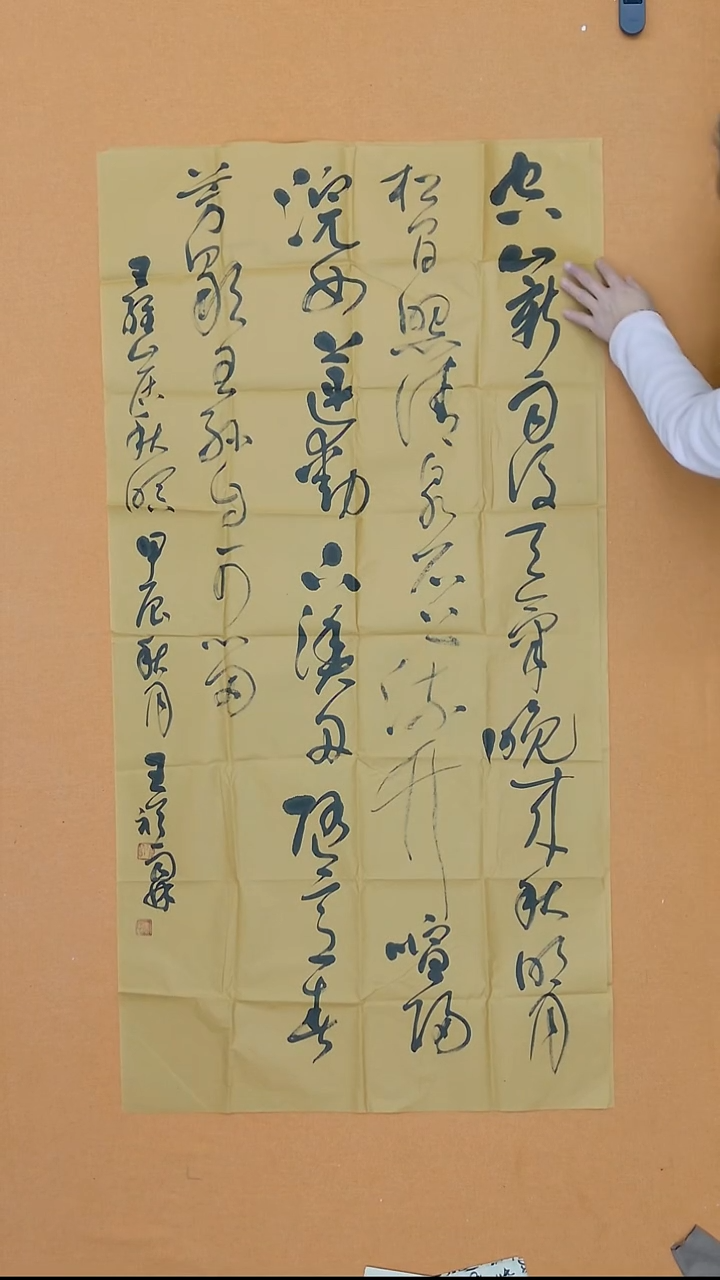 空山新雨後天氣晚來秋明月
松間照清泉石上流竹喧歸
浣女蓮動下漁舟隨意春
芳歇王孫自可留
王維山居秋暝 甲辰秋月 王